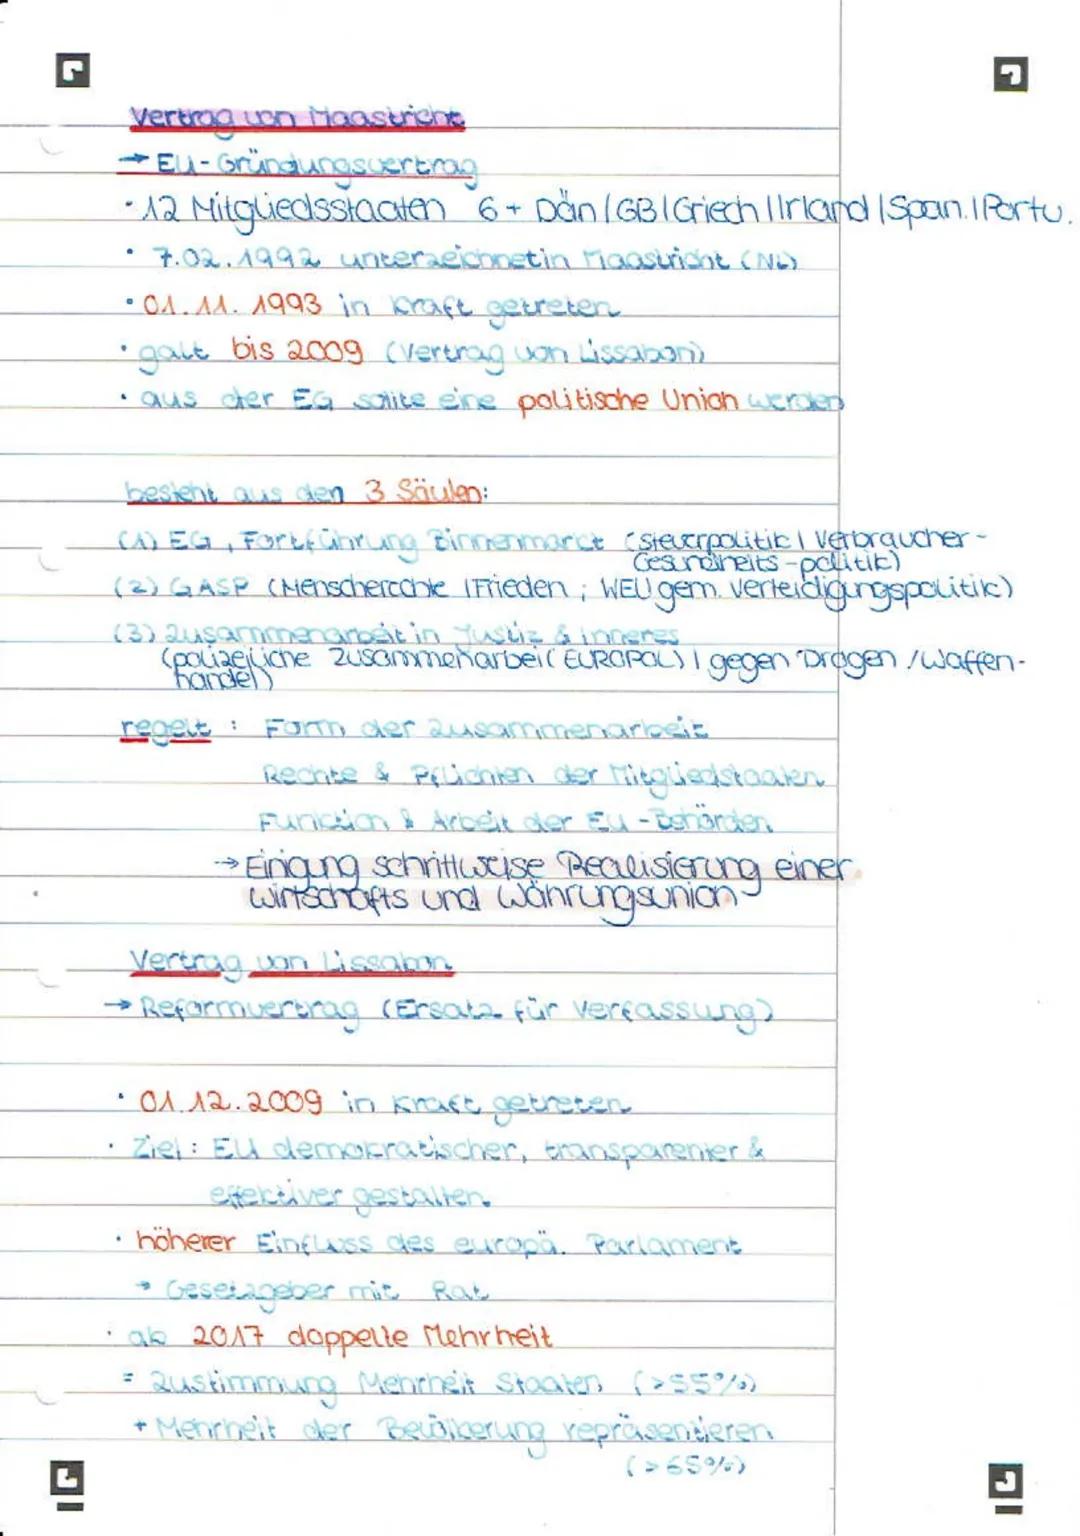 Vertrag von Maastricht
→ EU-Gründungsvertrag
· 12 Mitgliedsstaaten 6+ Dän/GB/Griech/Irland/Span./Portu.
· 7.02.1992 unterzeichnet in Maastricht (NL)
· 01.11.1993 in Kraft getreten
· galt bis 2009 (Vertrag von Lissabon)
· aus der EG sollte eine politische Union werden
besteht aus den 3 Säulen:
(1) EG, Fortführung Binnenmarct (Steuerpolitik/Verbraucher-
Gesundheits-politik)
(2) GASP (Menscherchte/Frieden; WEU gem. Verteidigungspolitik)
(3) Zusammenarbeit in Justiz & Inneres
(polizeiliche Zusammenarbei(EUROPOL)/gegen Drogen/Waffen-
handel)
regelt: Form der Zusammenarbeit
Rechte & Pflichten der Mitgliedstaaten
Funktion & Arbeit der EU-Behörden
→ Einigung schrittweise Realisierung einer
Wirtschafts und Währungsunion
Vertrag von Lissabon
→ Reformvertrag (Ersatz für Verfassung)
· 01.12.2009 in Kraft getreten
· Ziel: EU demokratischer, transparenter &
effektiver gestalten.
· höherer Einfluss des europä. Parlament
→ Gesetzgeber mit Rat
· ab 2017 doppelte Mehrheit
= Zustimmung Mehrheit Staaten (>55%)
+ Mehrheit der Bevölkerung repräsentieren
(>65%)